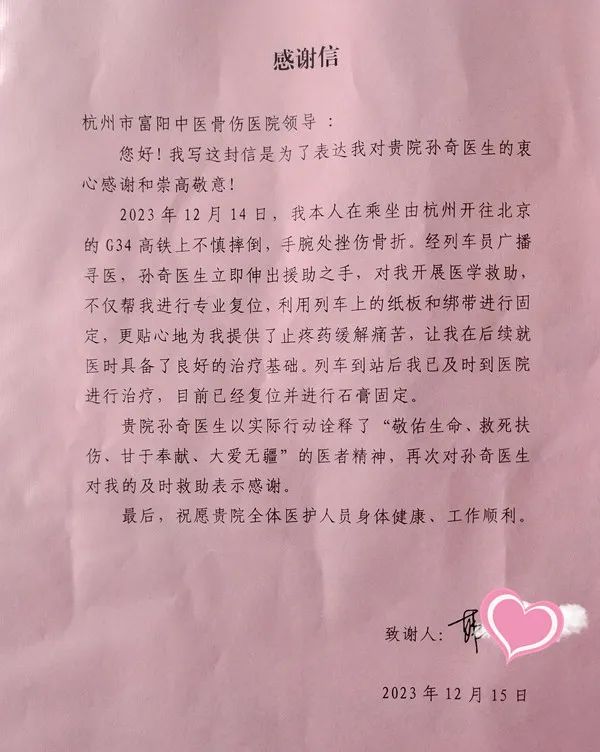 感谢信
杭州市富阳中医骨伤医院领导：
您好！我写这封信是为了表达我对贵院孙奇医生的衷
心感谢和崇高敬意！
2023年12月14日，我本人在乘坐由杭州开往北京
的G34高铁上不慎摔倒，手腕处挫伤骨折。经列车员广播
寻医，孙奇医生立即伸出援助之手，对我开展医学救助，
不仅帮我进行专业复位，利用列车上的纸板和绑带进行固
定，更贴心地为我提供了止疼药缓解痛苦，让我在后续就
医时具备了良好的治疗基础。列车到站后我已及时到医院
进行治疗，目前已经复位并进行石膏固定。
贵院孙奇医生以实际行动诠释了“敬佑生命、救死扶
伤、甘于奉献、大爱无疆”的医者精神，再次对孙奇医生
对我的及时救助表示感谢。
最后，祝愿贵院全体医护人员身体健康、工作顺利。
致谢人：
2023年12月15日